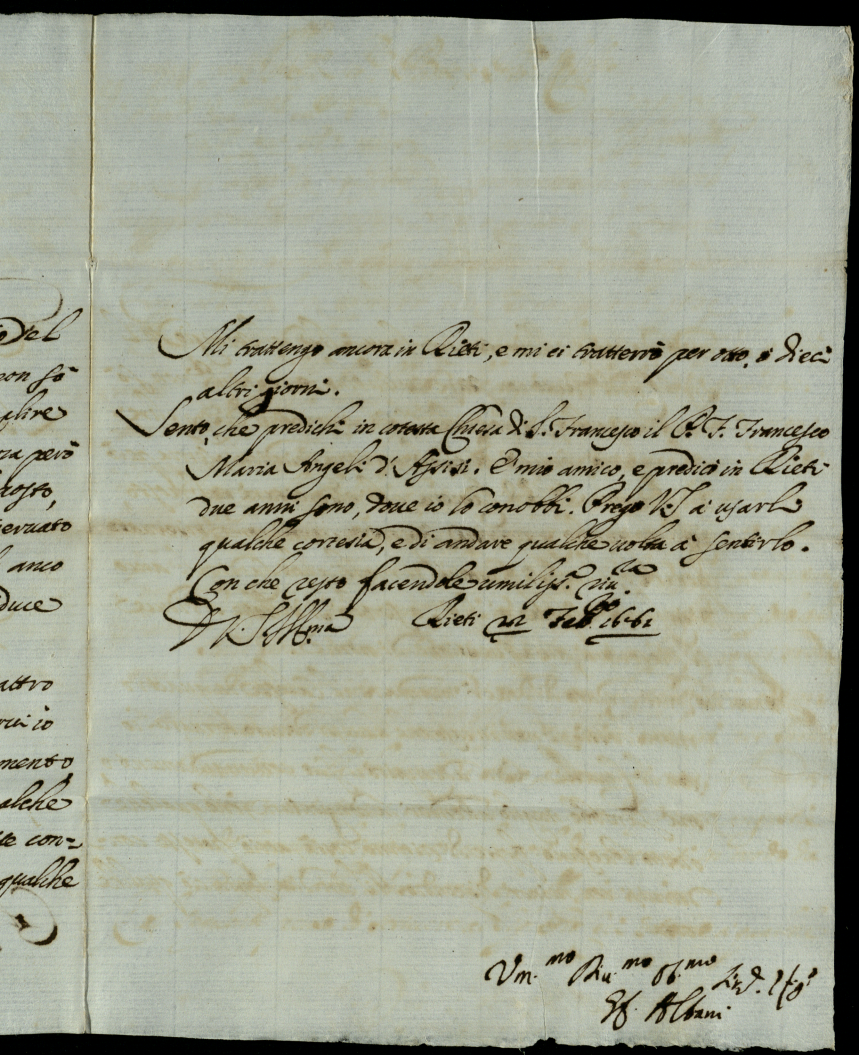 o del
non sò
altre
ma però
servato
anco
duce
attro
io
mento,
alche
te con=
qualche
Mi trattengo ancora in Rieti, e mi ci tratterrò per otto, ò dieci
altri giorni.
Sento, che predichi in cotesta Chiesa di S. Francesco il P. F. Francesco
Maria Angeli d'Assisi. È mio amico, e predicò in Rieti
due anni sono, doue io lo conobbi. Prego V.S. à usarli
qualche cortesia, e di andare qualche uolta à sentirlo.
Con che resto facendole umiliss.e riu.ze
D V. S. Ill.ma Rieti Feb.o 1661
Vm.mo Diu.mo Ob.mo
Albani